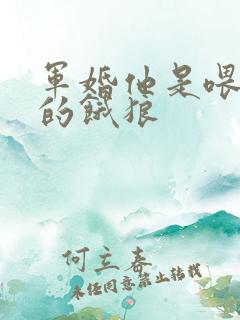 軍婚他是喂
的餓狼
何立春
未经同意禁止转载